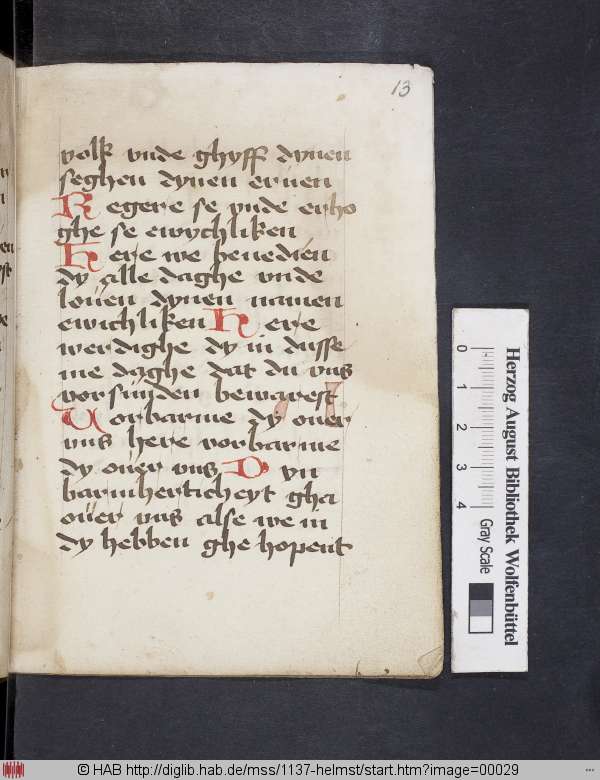 13
volk vnde ghyff dynen
seghen dynen eruen
Regere se vnde erho
ghe se ewychliken
Here we benedien
dy alle daghe vnde
louen dynen namen
ewichliken Here
werdighe dy in dusse
me daghe dat du vns
vor sunden bewarest
Vorbarme dy ouer
vns here vorbarme
dy ouer vns Dyn
barmherticheyt gha
ouer vns alse we in
dy hebben ghe hopent
0 1 2 3 4
Herzog August Bibliothek Wolfenbüttel
Gray Scale
© HAB http://diglib.hab.de/mss/1137-helmst/start.htm?image=00029